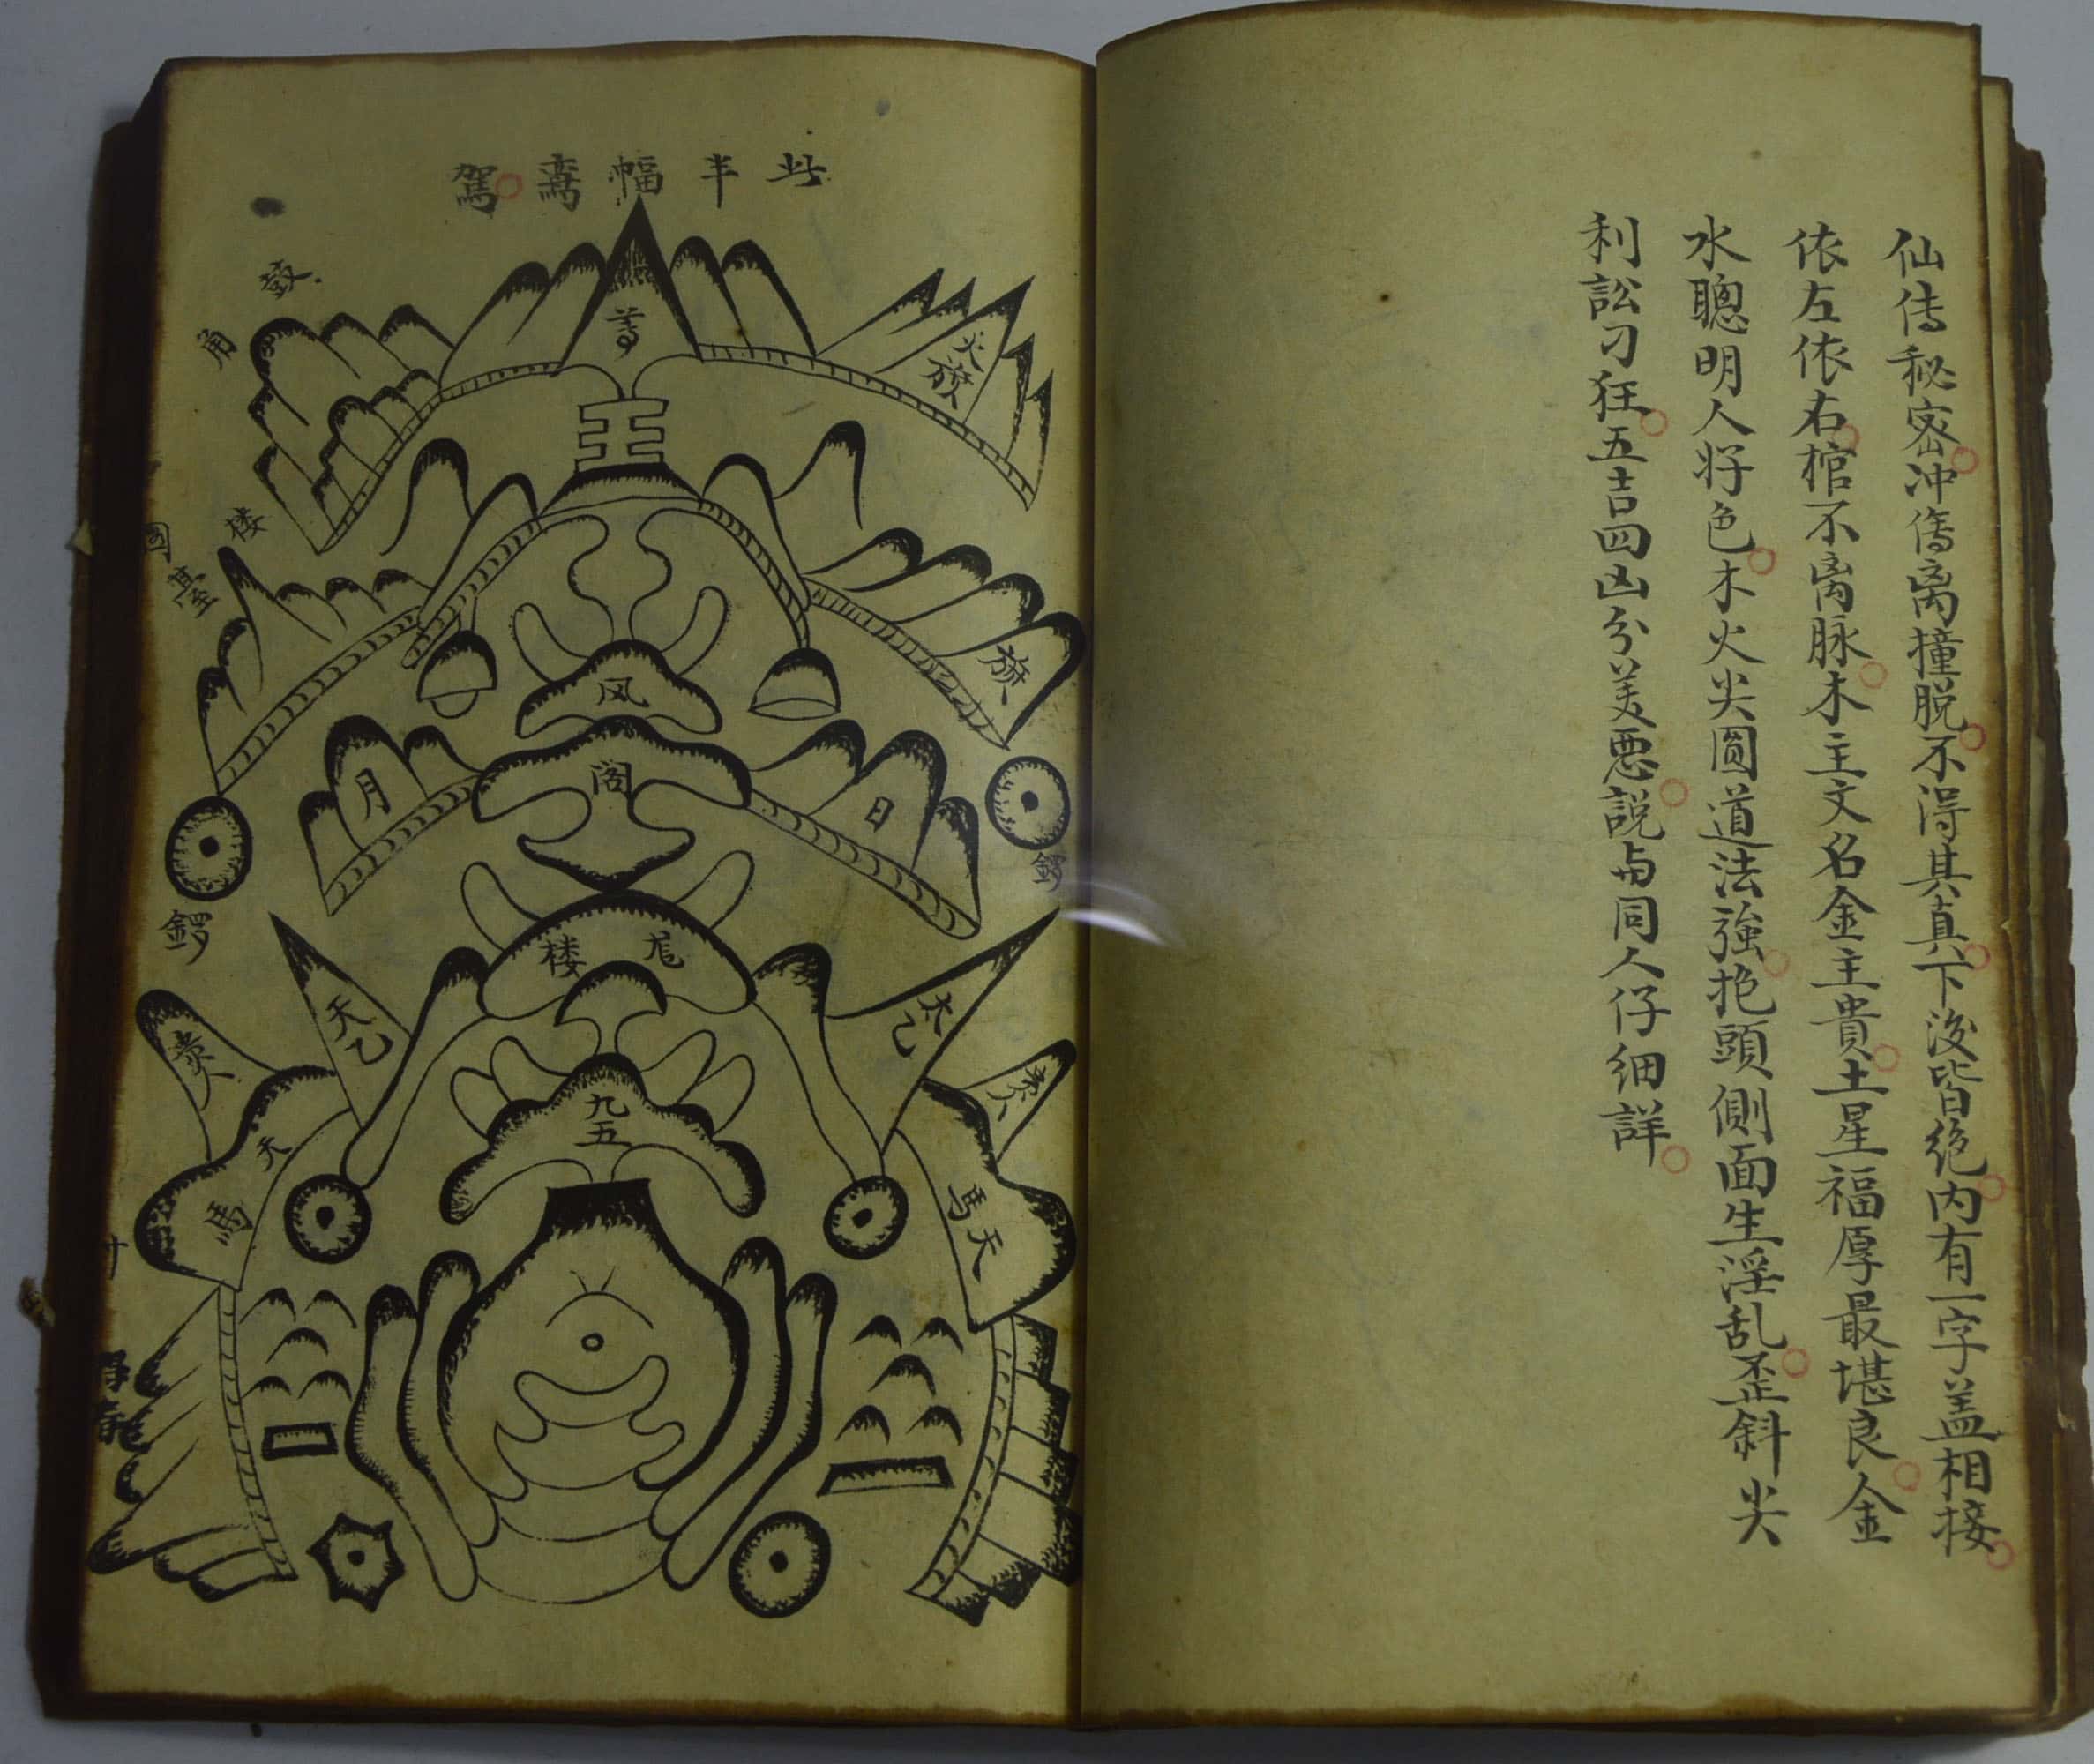 仙传秘密冲傷离撞脱不得其真下後皆绝内有一字盖相接
依左依右棺不离脉木主文名金主貴土星福厚最堪良金
水聰明人好色木火尖圓道法強抱頭側面生淫乱歪斜尖
利訟刁狂五吉四凶分美悪説与同人仔細詳
此半幅鸞駕
鼓
角
尊
火旗
王
楼
臺
旗
风
阁
月
日
鑼
鑼
楼
天乙
太乙
九五
天馬
天馬